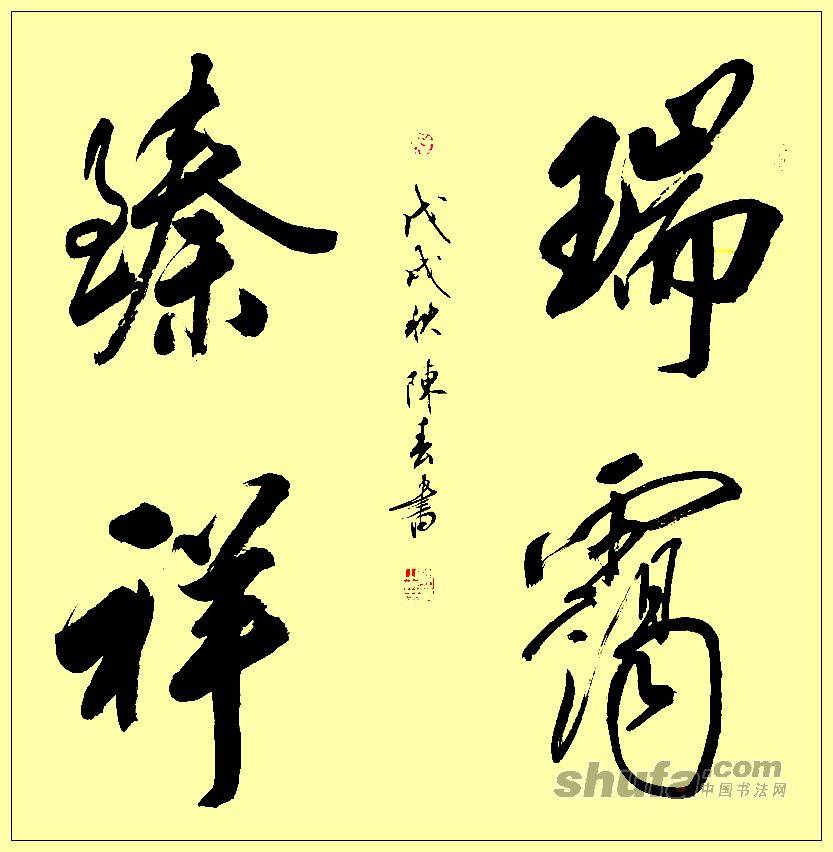 瑞霭
臻祥
戊戌秋陳春書
shufa.com
中国书法网